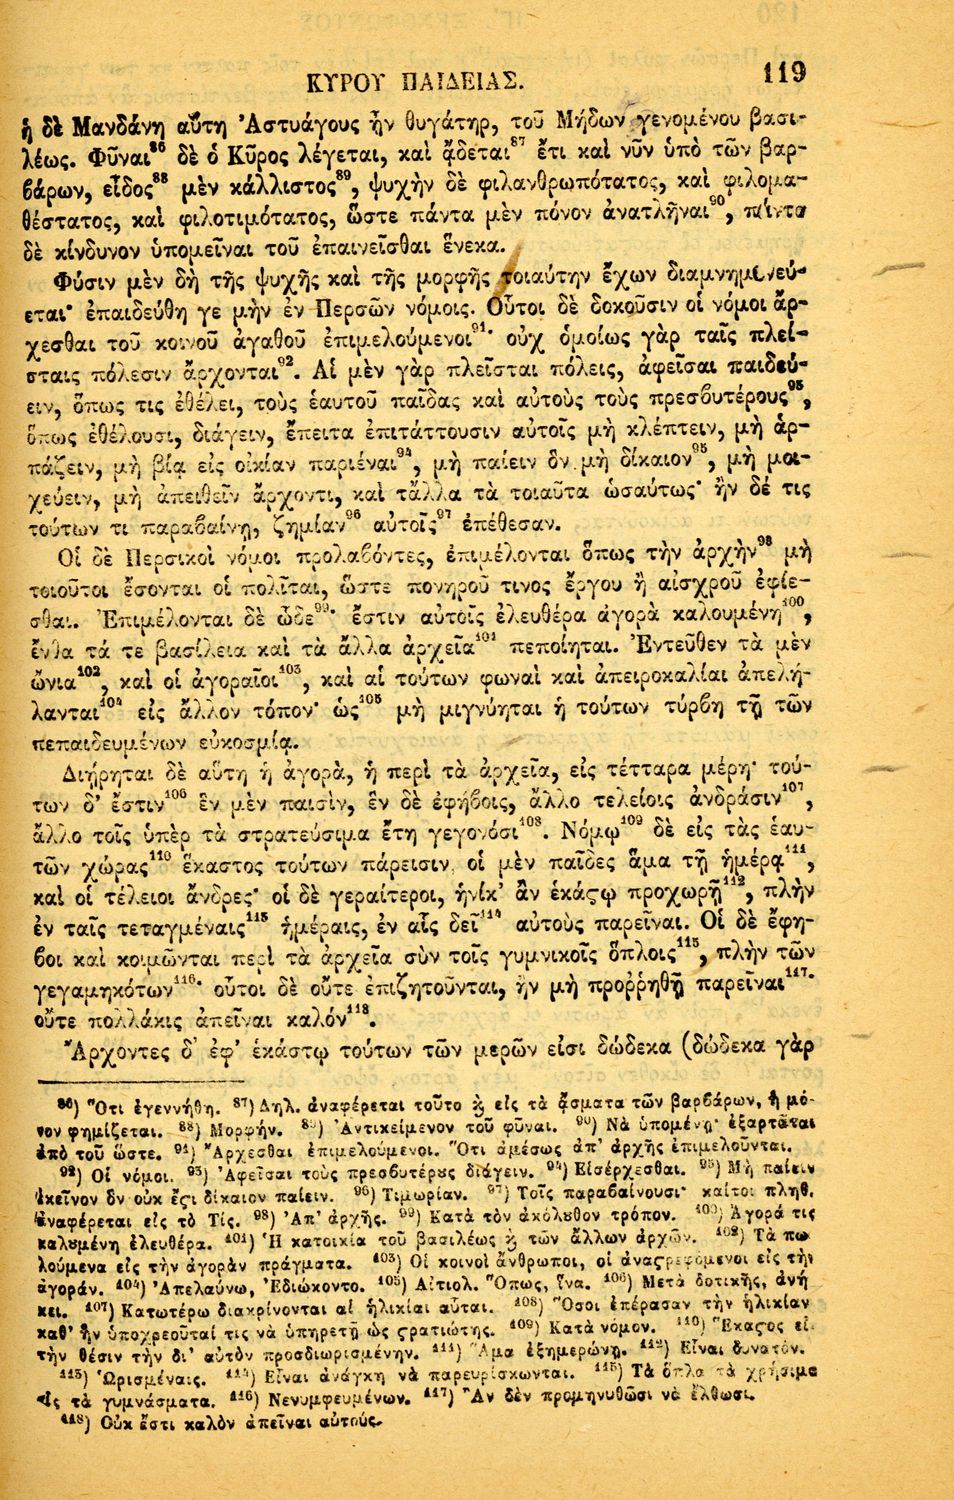 ΚΥΡΟΥ ΠΑΙΔΕΙΑΣ.
119
ἡ δὲ Μανδάνη αὕτη Ἀστυάγους ἦν θυγάτηρ, τοῦ Μήδων γενομένου βασι-
λέως. Φῦναι⁸⁶ δὲ ὁ Κῦρος λέγεται, καὶ ᾄδεται⁸⁷ ἔτι καὶ νῦν ὑπὸ τῶν βαρ-
βάρων, εἶδος⁸⁸ μὲν κάλλιστος⁸⁹, ψυχὴν δὲ φιλανθρωπότατος, καὶ φιλομα-
θέστατος, καὶ φιλοτιμότατος, ὥστε πάντα μὲν πόνον ἀνατλῆναι⁹⁰, πάντα
δὲ κίνδυνον ὑπομεῖναι τοῦ ἐπαινεῖσθαι ἕνεκα.
Φύσιν μὲν δὴ τῆς ψυχῆς καὶ τῆς μορφῆς τοιαύτην ἔχων διαμνημονεύ-
εται· ἐπαιδεύθη γε μὴν ἐν Περσῶν νόμοις. Οὗτοι δὲ δοκοῦσιν οἱ νόμοι ἄρ-
χεσθαι τοῦ κοινοῦ ἀγαθοῦ ἐπιμελούμενοι⁹¹· οὐχ ὁμοίως γὰρ ταῖς πλεί-
σταις πόλεσιν ἄρχονται⁹². Αἱ μὲν γὰρ πλεῖσται πόλεις, ἀφεῖσαι παιδεύ-
ειν, ὅπως τις ἐθέλει, τοὺς ἑαυτοῦ παῖδας καὶ αὐτοὺς τοὺς πρεσβυτέρους⁹³,
ὅπως ἐθέλουσι, διάγειν, ἔπειτα ἐπιτάττουσιν αὐτοῖς μὴ κλέπτειν, μὴ ἁρ-
πάζειν, μὴ βίᾳ εἰς οἰκίαν παριέναι⁹⁴, μὴ παίειν ὃν μὴ δίκαιον⁹⁵, μὴ μοι-
χεύειν, μὴ ἀπειθεῖν ἄρχοντι, καὶ τἄλλα τὰ τοιαῦτα ὡσαύτως· ἢν δέ τις
τούτων τι παραβαίνῃ, ζημίαν⁹⁶ αὐτοῖς⁹⁷ ἐπέθεσαν.
Οἱ δὲ Περσικοὶ νόμοι προλαβόντες, ἐπιμέλονται ὅπως τὴν ἀρχὴν⁹⁸ μὴ
τοιοῦτοι ἔσονται οἱ πολῖται, ὥστε πονηροῦ τινος ἔργου ἢ αἰσχροῦ ἐφίε-
σθαι. Ἐπιμέλονται δὲ ὧδε⁹⁹· ἔστιν αὐτοῖς ἐλευθέρα ἀγορὰ καλουμένη¹⁰⁰,
ἔνθα τά τε βασίλεια καὶ τὰ ἄλλα ἀρχεῖα¹⁰¹ πεποίηται. Ἐντεῦθεν τὰ μὲν
ὤνια¹⁰², καὶ οἱ ἀγοραῖοι¹⁰³, καὶ αἱ τούτων φωναὶ καὶ ἀπειροκαλίαι ἀπελή-
λανται¹⁰⁴ εἰς ἄλλον τόπον· ὡς¹⁰⁵ μὴ μιγνύηται ἡ τούτων τύρβη τῇ τῶν
πεπαιδευμένων εὐκοσμίᾳ.
Διῄρηται δὲ αὕτη ἡ ἀγορὰ, ἡ περὶ τὰ ἀρχεῖα, εἰς τέτταρα μέρη· τού-
των δ' ἔστιν¹⁰⁶ ἓν μὲν παισὶν, ἓν δὲ ἐφήβοις, ἄλλο τελείοις ἀνδράσιν¹⁰⁷,
ἄλλο τοῖς ὑπὲρ τὰ στρατεύσιμα ἔτη γεγονόσι¹⁰⁸. Νόμῳ¹⁰⁹ δὲ εἰς τὰς ἑαυ-
τῶν χώρας¹¹⁰ ἕκαστος τούτων πάρεισιν, οἱ μὲν παῖδες ἅμα τῇ ἡμέρᾳ¹¹¹,
καὶ οἱ τέλειοι ἄνδρες· οἱ δὲ γεραίτεροι, ἡνίκ' ἂν ἑκάϛῳ προχωρῇ¹¹², πλὴν
ἐν ταῖς τεταγμέναις¹¹³ ἡμέραις, ἐν αἷς δεῖ¹¹⁴ αὐτοὺς παρεῖναι. Οἱ δὲ ἔφη-
βοι καὶ κοιμῶνται περὶ τὰ ἀρχεῖα σὺν τοῖς γυμνικοῖς ὅπλοις¹¹⁵, πλὴν τῶν
γεγαμηκότων¹¹⁶· οὗτοι δὲ οὔτε ἐπιζητοῦνται, ἢν μὴ προῤῥηθῇ παρεῖναι¹¹⁷·
οὔτε πολλάκις ἀπεῖναι καλόν¹¹⁸.
Ἄρχοντες δ' ἐφ' ἑκάστῳ τούτων τῶν μερῶν εἰσι δώδεκα (δώδεκα γὰρ
⁸⁶) Ὅτι ἐγεννήθη. ⁸⁷) Δηλ. ἀναφέρεται τοῦτο ϗ εἰς τὰ ᾄσματα τῶν βαρβάρων, ἢ μό-
νον φημίζεται. ⁸⁸) Μορφήν. ⁸⁹) Ἀντικείμενον τοῦ φῦναι. ⁹⁰) Νὰ ὑπομένῃ· ἐξαρτᾶται
ἀπὸ τοῦ ὥστε. ⁹¹) Ἄρχεσθαι ἐπιμελούμενοι. Ὅτι ἀμέσως ἀπ' ἀρχῆς ἐπιμελοῦνται.
⁹²) Οἱ νόμοι. ⁹³) Ἀφεῖσαι τοὺς πρεσβυτέρȣς διάγειν. ⁹⁴) Εἰσέρχεσθαι. ⁹⁵) Μὴ παίειν
ἐκεῖνον ὃν οὐκ ἔϛι δίκαιον παίειν. ⁹⁶) Τιμωρίαν. ⁹⁷) Τοῖς παραβαίνουσι· καίτοι πληθ.
ἀναφέρεται εἰς τὸ Τίς. ⁹⁸) Ἀπ' ἀρχῆς. ⁹⁹) Κατὰ τὸν ἀκόλȣθον τρόπον. ¹⁰⁰) Ἀγορά τις
καλȣμένη ἐλευθέρα. ¹⁰¹) Ἡ κατοικία τοῦ βασιλέως ϗ τῶν ἄλλων ἀρχῶν. ¹⁰²) Τὰ πω-
λούμενα εἰς τὴν ἀγορὰν πράγματα. ¹⁰³) Οἱ κοινοὶ ἄνθρωποι, οἱ ἀναϛρεφόμενοι εἰς τὴν
ἀγοράν. ¹⁰⁴) Ἀπελαύνω, Ἐδιώκοντο. ¹⁰⁵) Αἰτιολ. Ὅπως, ἵνα. ¹⁰⁶) Μετὰ δοτικῆς, ἀνή
κει. ¹⁰⁷) Κατωτέρω διακρίνονται αἱ ἡλικίαι αὗται. ¹⁰⁸) Ὅσοι ἐπέρασαν τὴν ἡλικίαν
καθ' ἣν ὑποχρεοῦταί τις νὰ ὑπηρετῇ ὡς ϛρατιώτης. ¹⁰⁹) Κατὰ νόμον. ¹¹⁰) Ἕκαϛος εἰ-
τὴν θέσιν τὴν δι' αὐτὸν προσδιωρισμένην. ¹¹¹) Ἅμα ἐξημερώνῃ. ¹¹²) Εἶναι δυνατόν.
¹¹³) Ὡρισμέναις. ¹¹⁴) Εἶναι ἀνάγκη νὰ παρευρίσκωνται. ¹¹⁵) Τὰ ὅπλα τὰ χρήσιμα
εἰς τὰ γυμνάσματα. ¹¹⁶) Νενυμφευμένων. ¹¹⁷) Ἂν δὲν προμηνυθῶσι νὰ ἔλθωσι.
¹¹⁸) Οὐκ ἔστι καλὸν ἀπεῖναι αὐτούς.